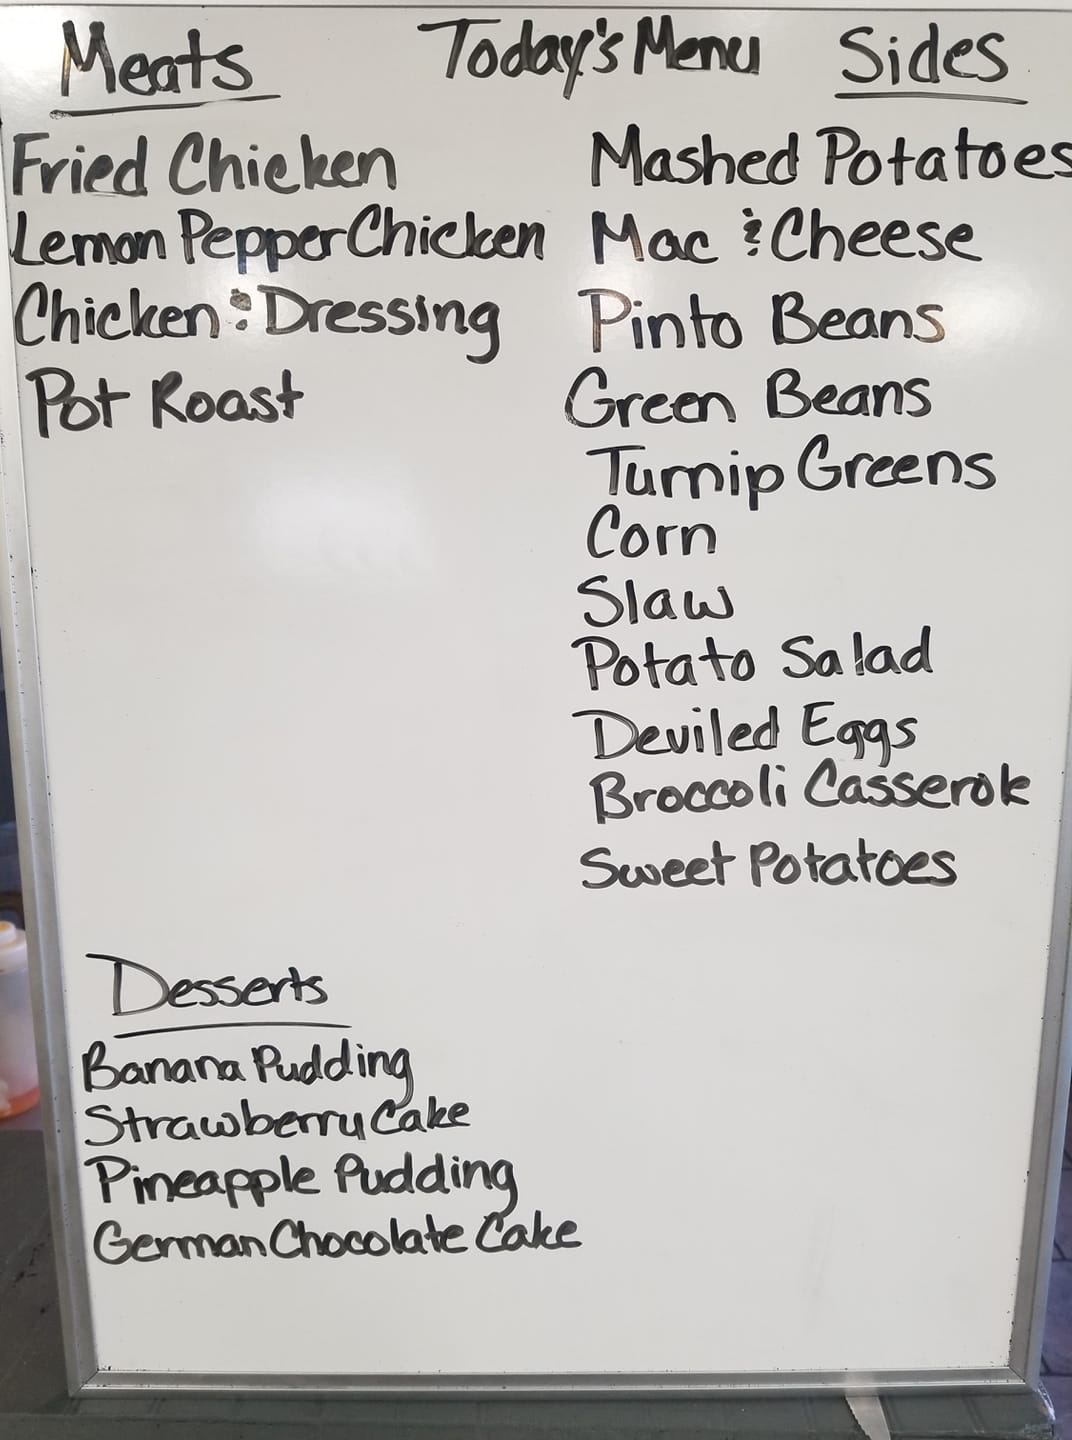 Today's Menu
Meats
Fried Chicken
Lemon Pepper Chicken
Chicken & Dressing
Pot Roast
Sides
Mashed Potatoes
Mac & Cheese
Pinto Beans
Green Beans
Turnip Greens
Corn
Slaw
Potato Salad
Deviled Eggs
Broccoli Casserole
Sweet Potatoes
Desserts
Banana Pudding
Strawberry Cake
Pineapple Pudding
German Chocolate Cake